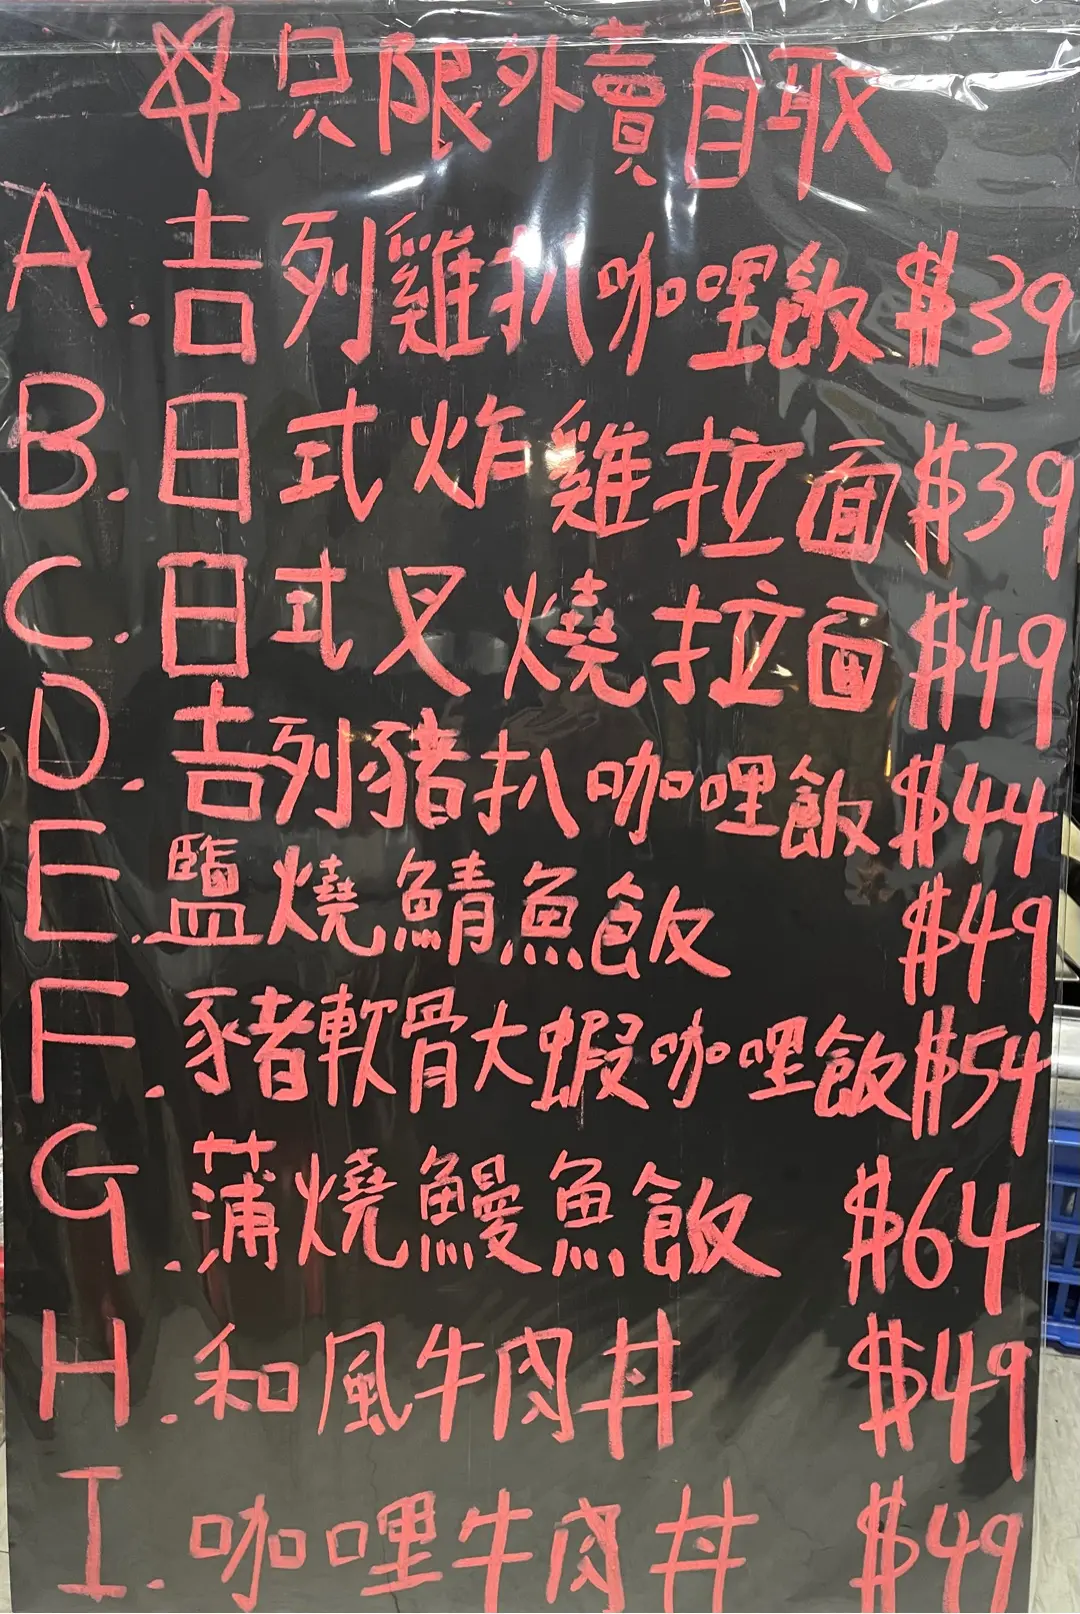 ☆只限外賣自取
A. 吉列雞扒咖哩飯 $39
B. 日式炸雞拉面 $39
C. 日式叉燒拉面 $49
D. 吉列豬扒咖哩飯 $44
E. 鹽燒鯖魚飯 $49
F. 豬軟骨大蝦咖哩飯 $54
G. 蒲燒鰻魚飯 $64
H. 和風牛肉丼 $49
I. 咖哩牛肉丼 $49